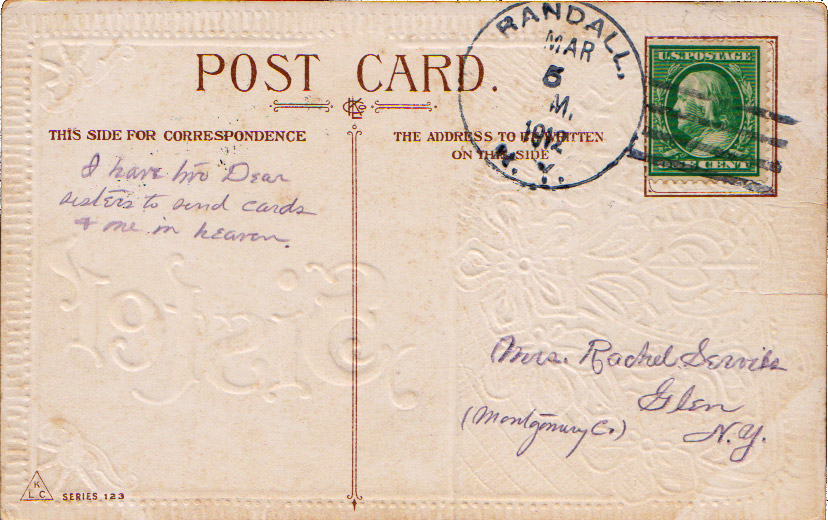 POST CARD.
THIS SIDE FOR CORRESPONDENCE
THE ADDRESS TO BE WRITTEN
ON THIS SIDE
RANDALL,
MAR
5
M.
1912
N. Y.
U.S. POSTAGE
ONE CENT
I have two Dear
sisters to send cards
& one in heaven.
Sister
Mrs. Rachel Serviss
Glen
(Montgomery Co)
N.Y.
K
L C
SERIES 123